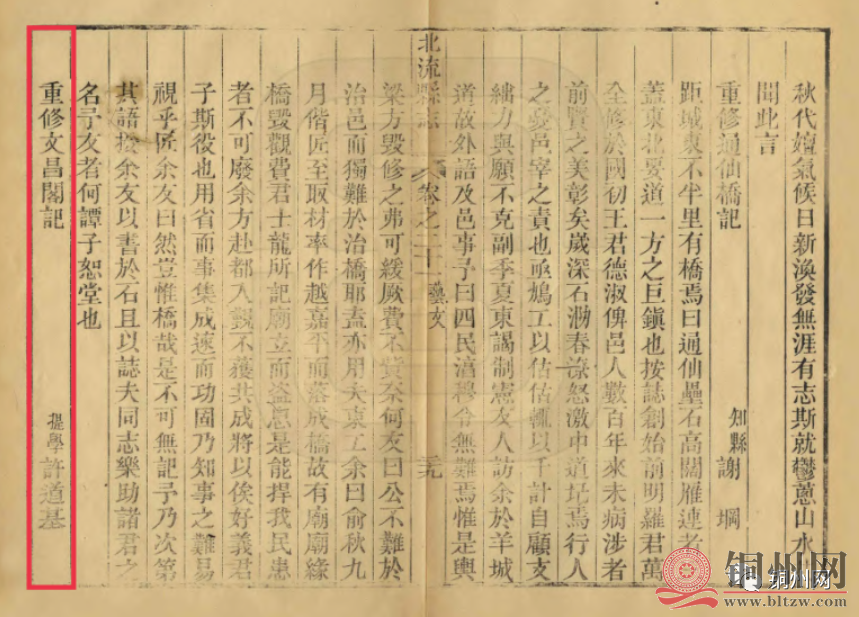 秋代嬗氣候日新渙發無涯有志斯就鬱蔥山水
聞此言
重修通仙橋記
知縣謝堈
距城東不半里有橋焉曰通仙壘石高闊雁連者
蓋東北要道一方之巨鎮也按誌創始前明羅君萬
全修於國初王君德淑俾邑人數百年來未病涉者
前賢之美彰矣歲深石泐春漲怒激中道圮焉行人
之憂邑宰之責也亟鳩工以估估輒以千計自顧支
繡力與願不克副季夏東謁制憲友人訪余於羊城
道故外語及邑事予曰四民淯穆令無難焉惟是輿
北流縣志
卷之二十一
藝文
三九
梁方毀修之弗可緩厥費不貲奈何友曰公不難於
治邑而獨難於治橋耶盍亦用夫東工余曰俞秋九
月偕匠至取材率作越嘉平而落成橋故有廟廟緣
橋毀觀費君士龍所記廟立而盜息是能捍我民患
者不可廢余方赴都入覲不獲共成將以俟好義君
子斯役也用省而事集成速而功固乃知事之難易
視乎匠余友曰然豈惟橋哉是不可無記予乃次第
其語授余友以書於石且以誌夫同志樂助諸君之
名予友者何譚子恕堂也
重修文昌閣記
提學許道基
铜州网
铜州网
www.bltzw.com